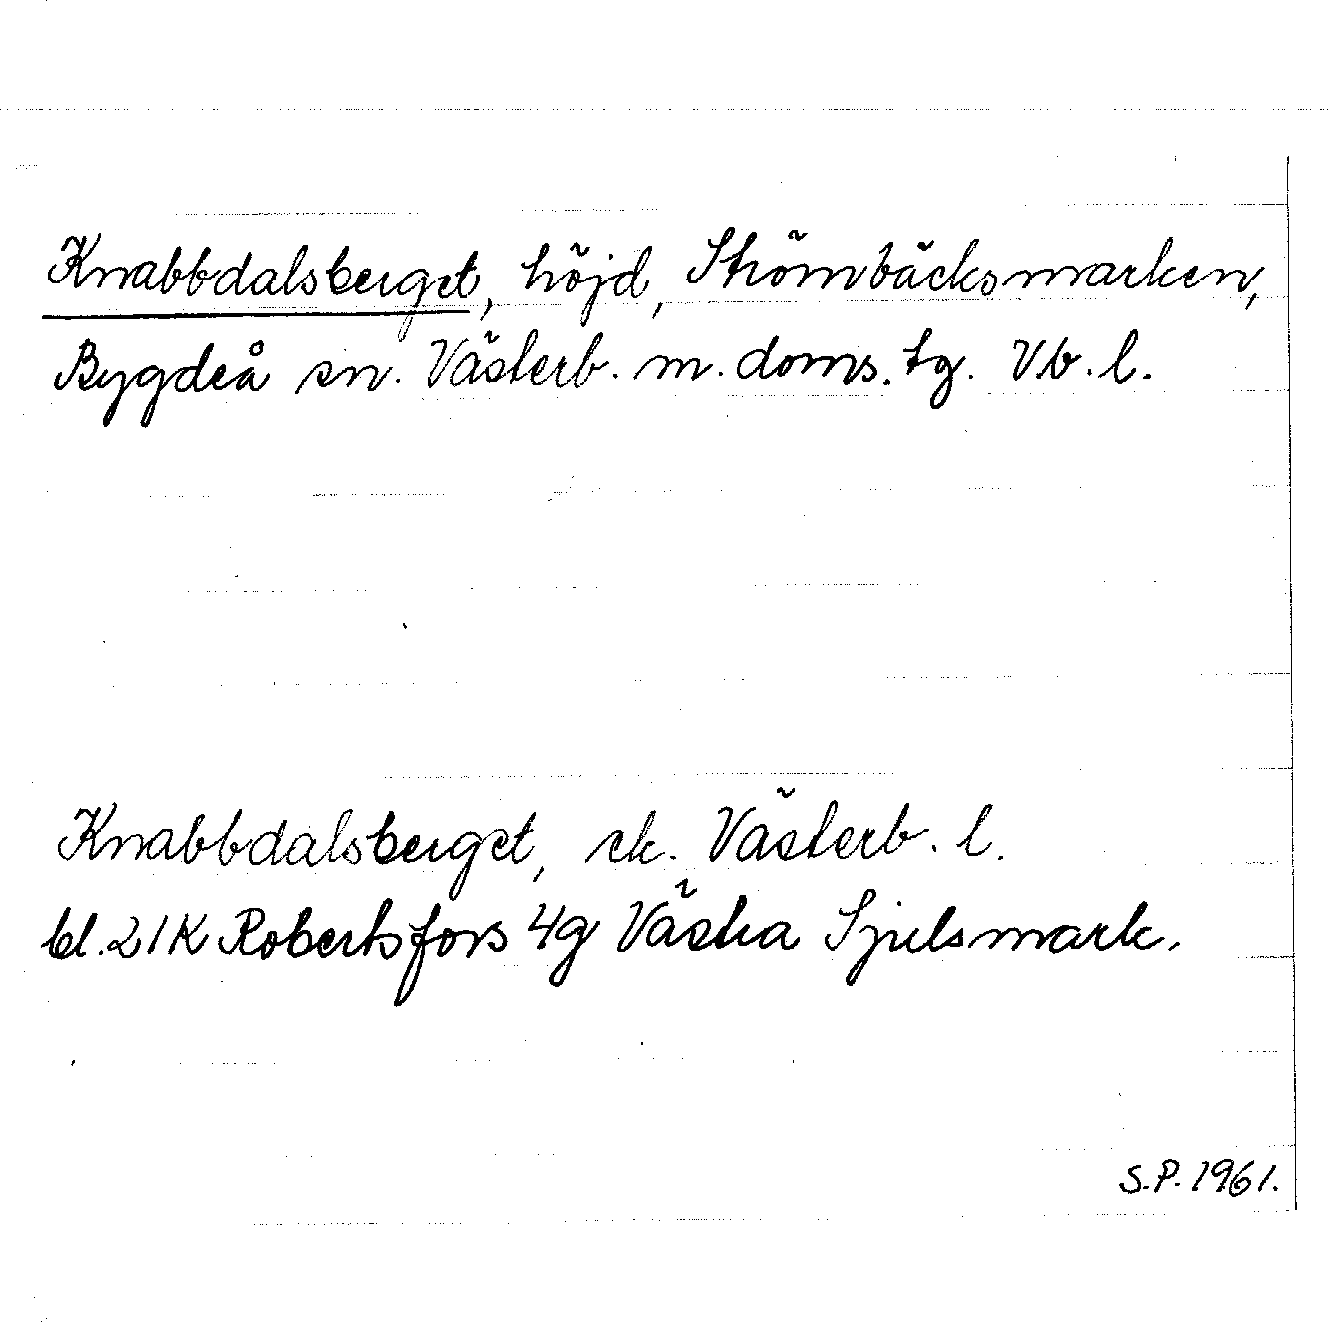 Knabbdalsberget, höjd, Strömbäcksmarken,
Bygdeå sn. Västerb. m. doms. tg. V.b. l.
Knabbdalsberget, ek. Västerb. l.
bl. 21K Robertsfors 4g Västra Sjulsmark.
S.P. 1961.